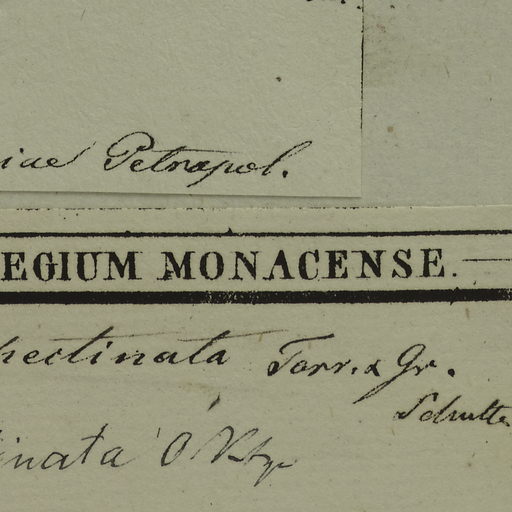 iae Petropol.
EGIUM MONACENSE.
pectinata Torr. & Gr.
Schultes
inata O Ktze